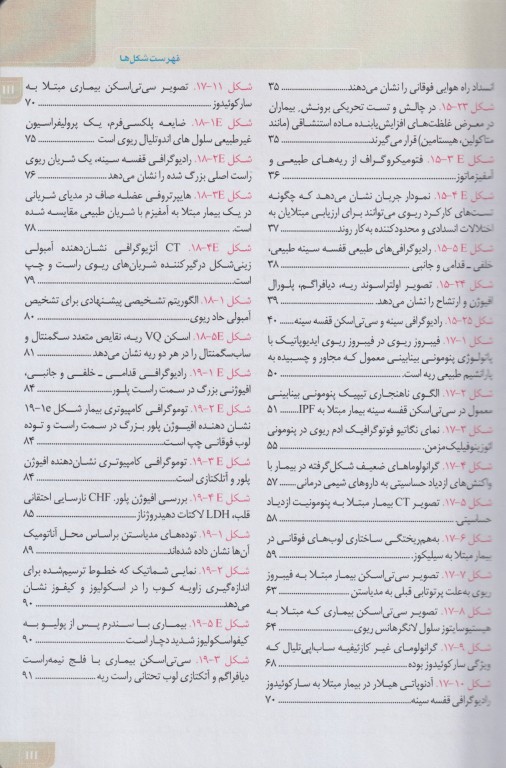 فهرست شکل‌ها
III
انسداد راه هوایی فوقانی را نشان می‌دهند ۳۵
شکل ۲۳-۱۵. در چالش و تست تحریکی برونش، بیماران
در معرض غلظت‌های افزایش‌یابنده ماده استنشاقی (مانند
متاکولین، هیستامین) قرار می‌گیرند ۳۵
شکل E ۳-۱۵. فتومیکروگراف از ریه‌های طبیعی و
آمفیزماتوز ۳۶
شکل E ۴-۱۵. نمودار جریان نشان می‌دهد که چگونه
تست‌های کارکرد ریوی می‌توانند برای ارزیابی مبتلایان به
اختلالات انسدادی و محدودکننده به‌کار روند ۳۷
شکل E ۵-۱۵. رادیوگرافی‌های طبیعی قفسه سینه طبیعی،
خلفی ـ قدامی و جانبی ۳۸
شکل ۲۴-۱۵. تصویر اولتراسوند ریه، دیافراگم، پلورال
افیوژن و ارتشاح را نشان می‌دهد. ۳۹
شکل ۲۵-۱۵. رادیوگرافی سینه و سی‌تی‌اسکن قفسه سینه ۴۰
شکل ۱-۱۷. فیبروز ریوی در فیبروز ریوی ایدیوپاتیک با
پاتولوژی پنومونی بینابینی معمول که مجاور و چسبیده به
پارانشیم طبیعی ریه است. ۵۰
شکل ۲-۱۷. الگوی ناهنجاری تیپیک پنومونی بینابینی
معمول در سی‌تی‌اسکن قفسه سینه بیمار مبتلا به IPF ۵۱
شکل ۳-۱۷. نمای نگاتیو فوتوگرافیک ادم ریوی در پنومونی
ائوزینوفیلیک‌مزمن. ۵۵
شکل ۴-۱۷. گرانولوماهای ضعیف شکل‌گرفته در بیمار با
واکنش‌های ازدیاد حساسیتی به داروهای شیمی درمانی ۵۷
شکل ۵-۱۷. تصویر CT بیمار مبتلا به پنومونیت ازدیاد
حساسیتی ۵۸
شکل ۶-۱۷. به‌هم‌ریختگی ساختاری لوب‌های فوقانی در
بیمار مبتلا به سیلیکوز. ۵۹
شکل ۷-۱۷. تصویر سی‌تی‌اسکن بیمار مبتلا به فیبروز
ریوی به‌علت پرتوتابی قبلی به مدیاستن ۶۳
شکل ۸-۱۷. تصویر سی‌تی‌اسکن بیماری که مبتلا به
هیستیوسایتوز سلول لانگرهانس ریوی. ۶۴
شکل ۹-۱۷. گرانولومای غیر کازئیفیه ساب‌اپی‌تلیال که
ویژگی سارکوئیدوز بوده ۶۸
شکل ۱۰-۱۷. آدنوپاتی هیلار در بیمار مبتلا به سارکوئیدوز
رادیوگرافی قفسه سینه. ۷۰
شکل ۱۱-۱۷. تصویر سی‌تی‌اسکن بیماری مبتلا به
سارکوئیدوز ۷۰
شکل ۱E-۱۸. ضایعه پلکسی‌فرم، یک پرولیفراسیون
غیرطبیعی سلول های اندوتلیال ریوی است ۷۵
شکل ۲E-۱۸. رادیوگرافی قفسه سینه، یک شریان ریوی
راست اصلی بزرگ شده را نشان می‌دهد ۷۶
شکل ۳E-۱۸. هایپرتروفی عضله صاف در مدیای شریانی
در یک بیمار مبتلا به آمفیزم با شریان طبیعی مقایسه شده
است. ۷۸
شکل ۴E-۱۸. CT آنژیوگرافی نشان‌دهنده آمبولی
زینی‌شکل درگیرکننده شریان‌های ریوی راست و چپ
است ۷۹
شکل ۱-۱۸. الگوریتم تشخیصی پیشنهادی برای تشخیص
آمبولی حاد ریوی ۸۰
شکل ۵E-۱۸. اسکن VQ ریه، نقایص متعدد سگمنتال و
ساب‌سگمنتال را در هر دو ریه نشان می‌دهد ۸۱
شکل E ۱-۱۹. رادیوگرافی قدامی ـ خلفی و جانبی،
افیوژنی بزرگ در سمت راست پلور ۸۴
شکل E ۲-۱۹. توموگرافی کامپیوتری بیمار شکل ۱e-۱۹
نشان دهنده افیوژن پلور بزرگ در سمت راست و توده
لوب فوقانی چپ است. ۸۴
شکل E ۳-۱۹. توموگرافی کامپیوتری نشان‌دهنده افیوژن
پلور و آتلکتازی است ۸۴
شکل E ۴-۱۹. بررسی افیوژن پلور. CHF نارسایی احتقانی
قلب، LDH لاکتات دهیدروژناز ۸۵
شکل ۱-۱۹. توده‌های مدیاستن براساس محل آناتومیک
آن‌ها نشان داده شده‌اند ۸۹
شکل ۲-۱۹. نمایی شماتیک که خطوط ترسیم‌شده برای
اندازه‌گیری زاویه کوب را در اسکولیوز و کیفوز نشان
می‌دهد ۹۰
شکل E ۵-۱۹. بیماری با سندرم پس از پولیو به
کیفواسکولیوز شدید دچار است ۹۰
شکل ۳-۱۹. سی‌تی‌اسکن بیماری با فلج نیمه‌راست
دیافراگم و آتلکتازی لوب تحتانی راست ریه ۹۱
III